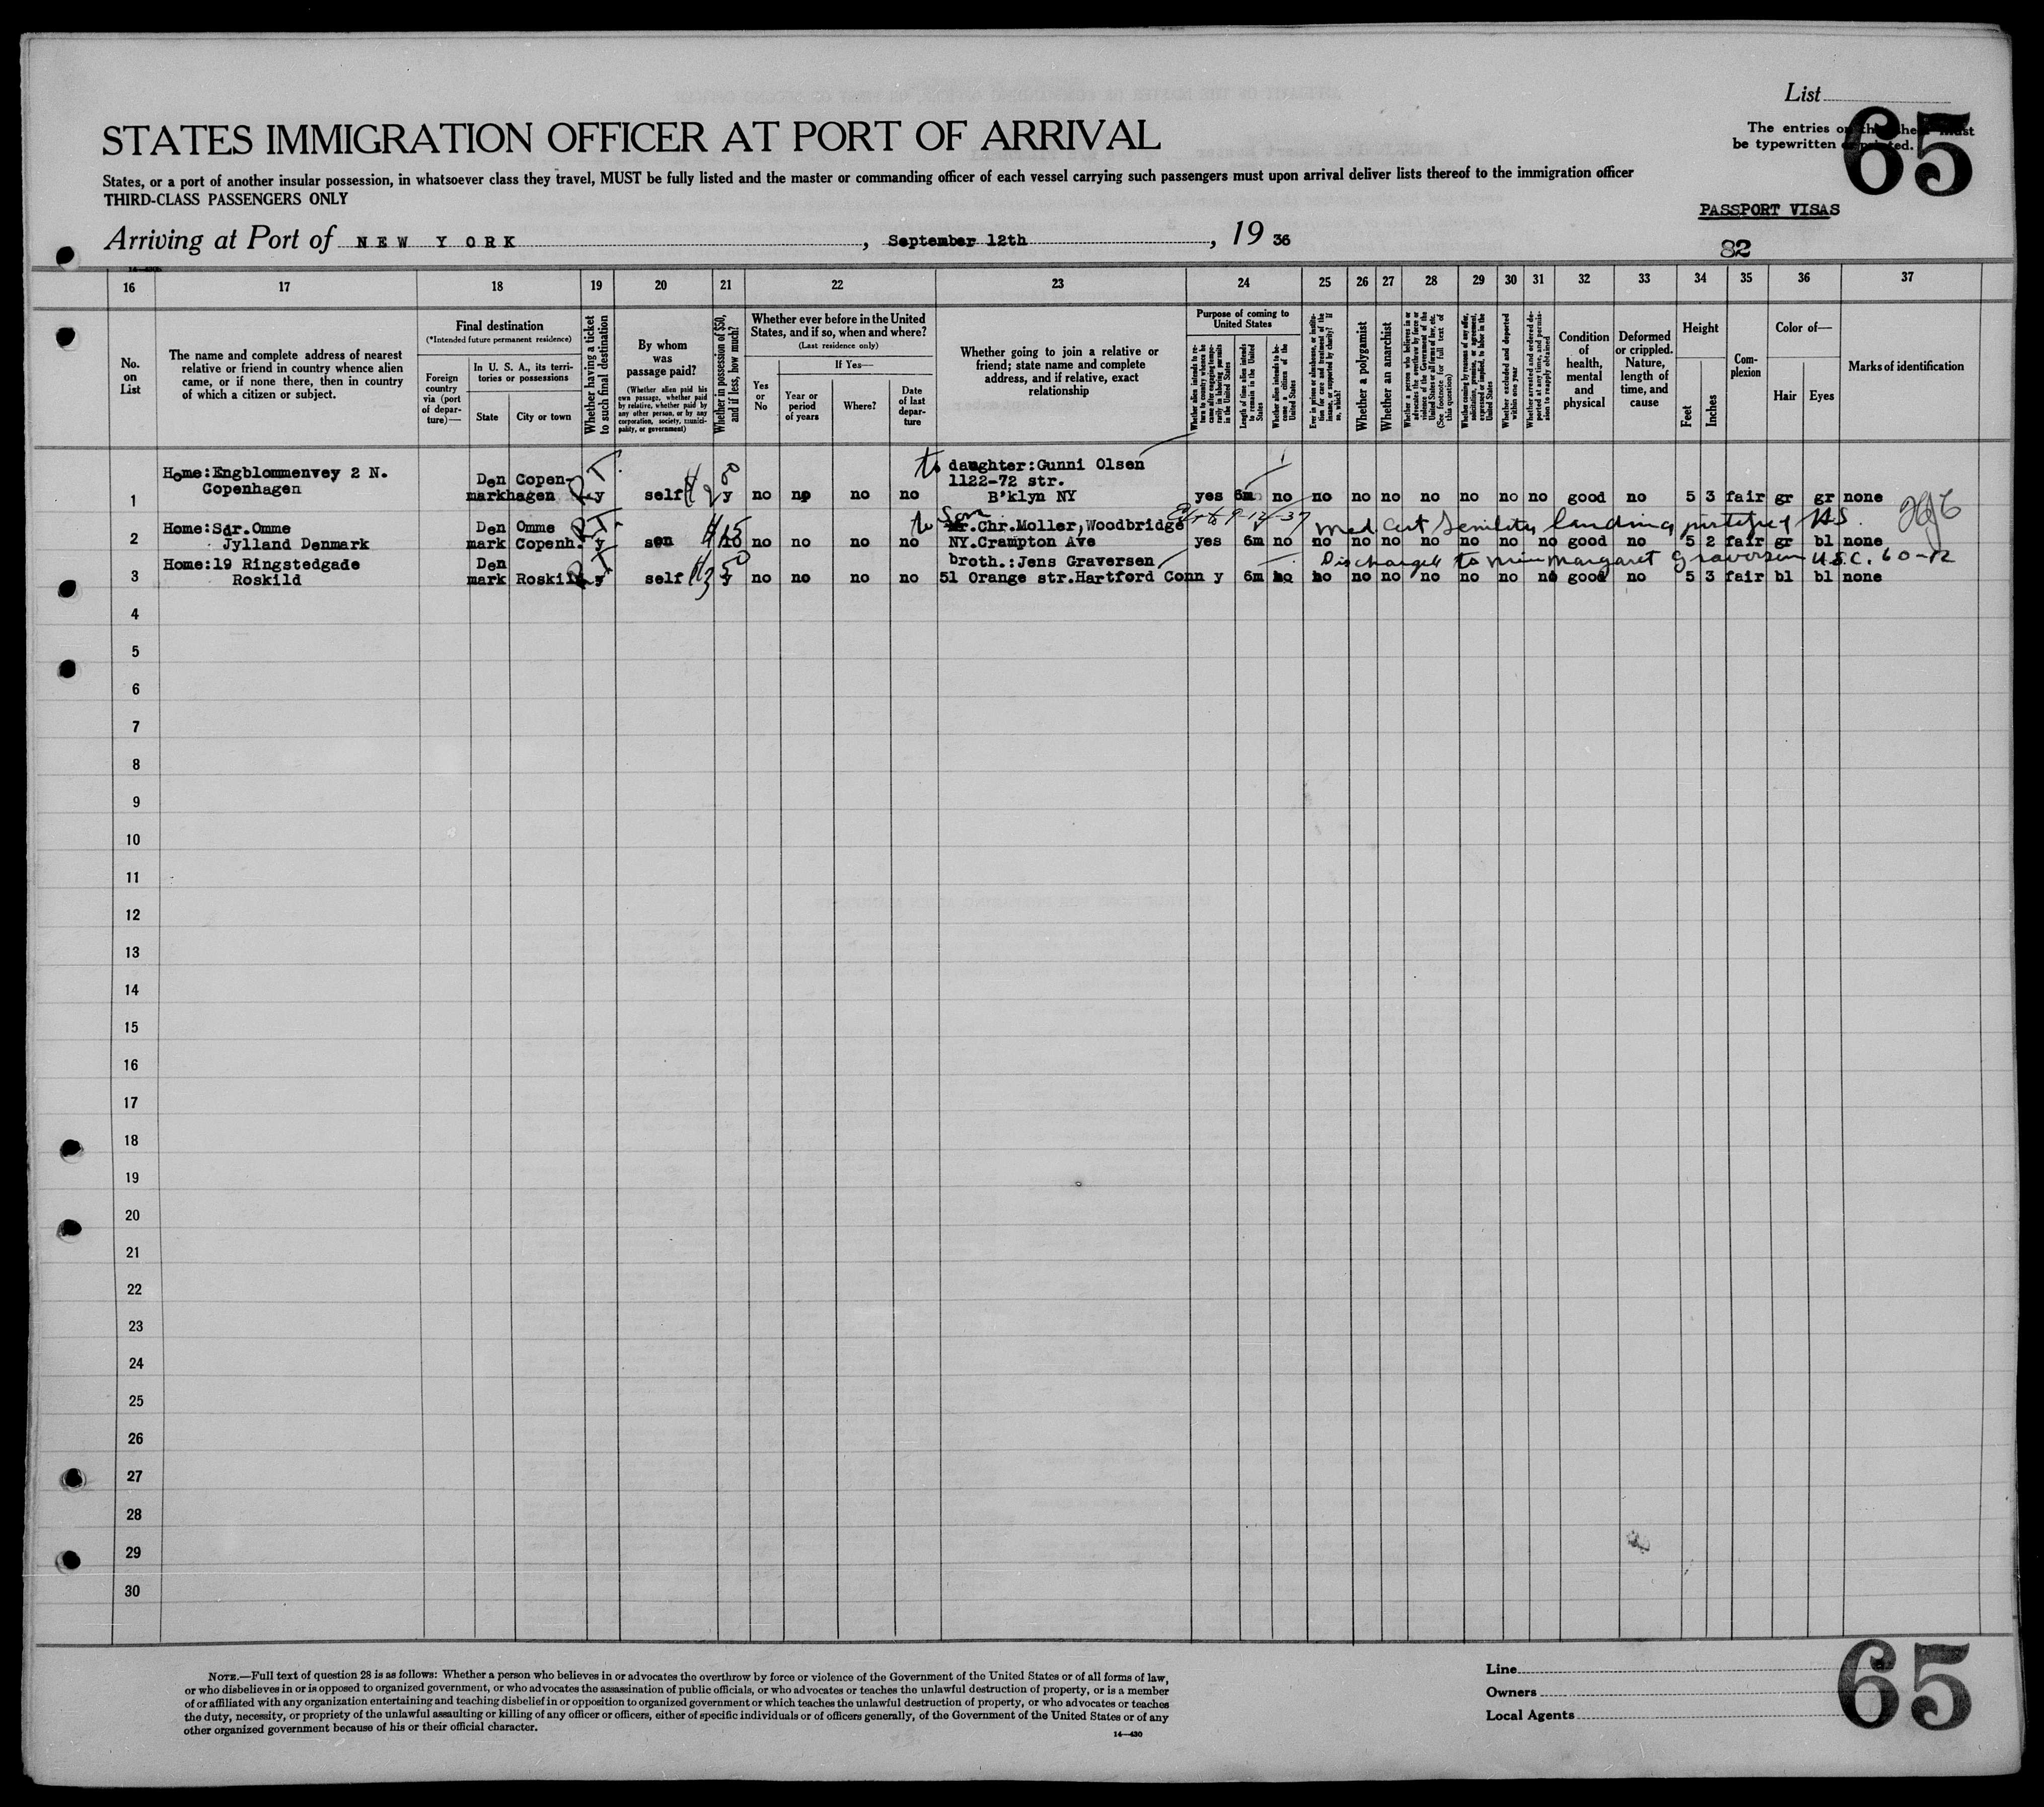 List
65
The entries on this sheet must
be typewritten or printed.
STATES IMMIGRATION OFFICER AT PORT OF ARRIVAL
States, or a port of another insular possession, in whatsoever class they travel, MUST be fully listed and the master or commanding officer of each vessel carrying such passengers must upon arrival deliver lists thereof to the immigration officer
THIRD-CLASS PASSENGERS ONLY
PASSPORT VISAS
Arriving at Port of NEW YORK, September 12th, 19 36
82
16 17 18 19 20 21 22 23 24 25 26 27 28 29 30 31 32 33 34 35 36 37
No. on List
The name and complete address of nearest relative or friend in country whence alien came, or if none there, then in country of which a citizen or subject.
Final destination
(*Intended future permanent residence)
Foreign country via (port of departure)—
In U. S. A., its territories or possessions
State
City or town
Whether having a ticket to such final destination
By whom was passage paid?
(Whether alien paid his own passage, whether paid by relative, whether paid by any other person, or by any corporation, society, municipality, or government)
Whether in possession of $50, and if less, how much?
Whether ever before in the United States, and if so, when and where?
(Last residence only)
Yes or No
If Yes—
Year or period of years
Where?
Date of last departure
Whether going to join a relative or friend; state name and complete address, and if relative, exact relationship
Purpose of coming to United States
Whether alien intends to return to country whence he came after engaging temporarily in laboring pursuits in the United States
Length of time alien intends to remain in the United States
Whether alien intends to become a citizen of the United States
Ever in prison or almshouse, or institution for care and treatment of the insane, or supported by charity? If so, which?
Whether a polygamist
Whether an anarchist
Whether a person who believes in or advocates the overthrow by force or violence of the Government of the United States or all forms of law, etc. (See footnote for full text of this question)
Whether coming by reasons of any offer, solicitation, promise, or agreement, expressed or implied, to labor in the United States
Whether excluded and deported within one year
Whether arrested and ordered deported at any time, and permission to reapply obtained
Condition of health, mental and physical
Deformed or crippled. Nature, length of time, and cause
Height
Feet
Inches
Complexion
Color of—
Hair
Eyes
Marks of identification
Home:Engblommenvey 2 N. Den Copen- to daughter:Gunni Olsen
Copenhagen 1122-72 str.
1 markhagen y self y no no no no B'klyn NY yes 6m no no no no no no no no good no 5 3 fair gr gr none
Home:Sdr.Omme Den Omme to Son Mr.Chr.Moller,Woodbridge Med Cert Senility landing
2 Jylland Denmark mark Copenh. y son 15 no no no no NY.Crampton Ave yes 6m no no no no no no no no good no 5 2 fair gr bl none
Home:19 Ringstedgade Den broth.:Jens Graversen Discharged to Margaret Graversen U.S.C. 60-12
3 Roskild mark Roskild y self y no no no no 51 Orange str.Hartford Conn y 6m no no no no no no no no good no 5 3 fair bl bl none
4
5
6
7
8
9
10
11
12
13
14
15
16
17
18
19
20
21
22
23
24
25
26
27
28
29
30
NOTE.—Full text of question 28 is as follows: Whether a person who believes in or advocates the overthrow by force or violence of the Government of the United States or of all forms of law,
or who disbelieves in or is opposed to organized government, or who advocates the assassination of public officials, or who advocates or teaches the unlawful destruction of property, or is a member
of or affiliated with any organization entertaining and teaching disbelief in or opposition to organized government or which teaches the unlawful destruction of property, or who advocates or teaches
the duty, necessity, or propriety of the unlawful assaulting or killing of any officer or officers, either of specific individuals or of officers generally, of the Government of the United States or of any
other organized government because of his or their official character.
14—430
Line
Owners
Local Agents
65